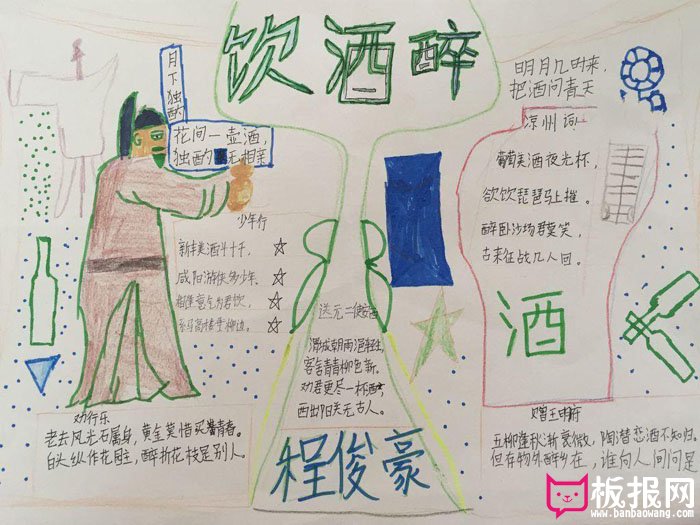 饮酒醉
月下独酌
花间一壶酒,
独酌无相亲
少年行
新丰美酒斗十千,
咸阳游侠多少年.
相逢意气为君饮,
系马高楼垂柳边.
劝行乐
老去风光不属身,黄金莫惜买青春。
白头纵作花园主,醉折花枝是别人.
送元二使安西
渭城朝雨浥轻尘,
客舍青青柳色新.
劝君更尽一杯酒,
西出阳关无古人.
程俊豪
明月几时来,
把酒问青天
凉州词
葡萄美酒夜光杯,
欲饮琵琶马上摧.
醉卧沙场君莫笑,
古来征战几人回.
酒
赠王明府
五柳蓬秋渐衰微,陶潜恋酒不知归.
但存物外醉乡在,谁向人间问是
板报网
www.banbaowang.com